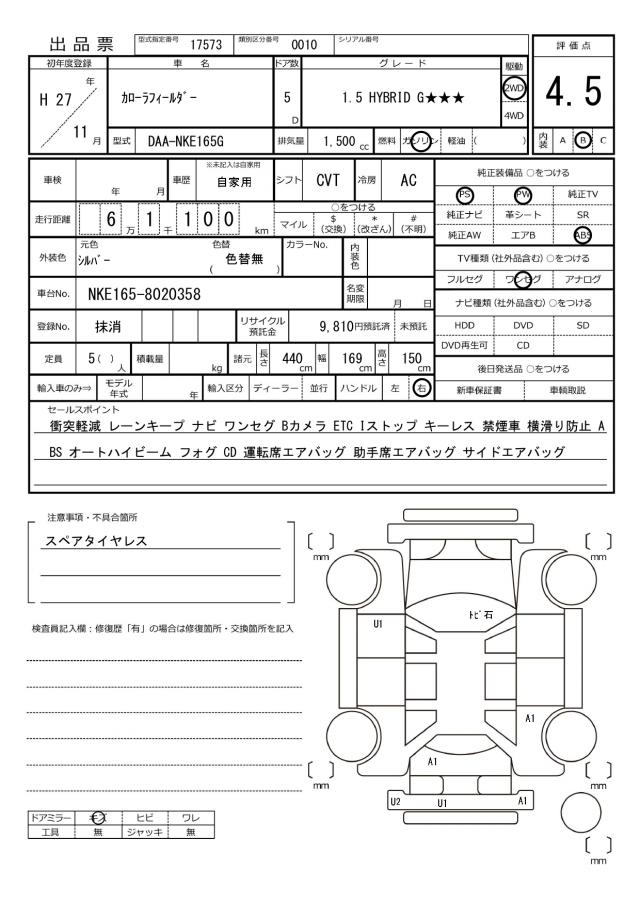 出品票 型式指定番号 17573 類別区分番号 0010 シリアル番号
評価点
4.5
初年度登録 車名 ドア数 グレード 駆動
H 27 年 11 月 カローラフィールダー 5 D 1.5 HYBRID G★★★ 2WD 4WD
型式 DAA-NKE165G 排気量 1,500 cc 燃料 ガソリン 軽油 ( ) 内装 A B C
車検 年 月 車歴 ※未記入は自家用 自家用 シフト CVT 冷房 AC
純正装備品 ○をつける
PS PW 純正TV
純正ナビ 革シート SR
純正AW エアB ABS
走行距離 6 万 1 千 1 0 0 km ○をつける
マイル $ (交換) * (改ざん) # (不明)
外装色 元色 シルバー 色替 ( 色替無 ) カラーNo. 内装色
TV種類 (社外品含む) ○をつける
フルセグ ワンセグ アナログ
車台No. NKE165-8020358 名変期限 月 日
ナビ種類 (社外品含む) ○をつける
HDD DVD SD
DVD再生可 CD
登録No. 抹消 リサイクル預託金 9,810円預託済 未預託
定員 5 ( ) 人 積載量 kg 諸元 長さ 440 cm 幅 169 cm 高さ 150 cm
後日発送品 ○をつける
新車保証書 車輌取説
輸入車のみ⇒ モデル年式 年 輸入区分 ディーラー 並行 ハンドル 左 右
セールスポイント
衝突軽減 レーンキープ ナビ ワンセグ Bカメラ ETC Iストップ キーレス 禁煙車 横滑り防止 A
BS オートハイビーム フォグ CD 運転席エアバッグ 助手席エアバッグ サイドエアバッグ
注意事項・不具合箇所
スペアタイヤレス
検査員記入欄：修復歴「有」の場合は修復箇所・交換箇所を記入
〔 〕 mm 〔 〕 mm
トビ石
U1
A1
A1
〔 〕 mm 〔 〕 mm
U2 U1 A1
〔 〕 mm
ドアミラー キズ ヒビ ワレ
工具 無 ジャッキ 無